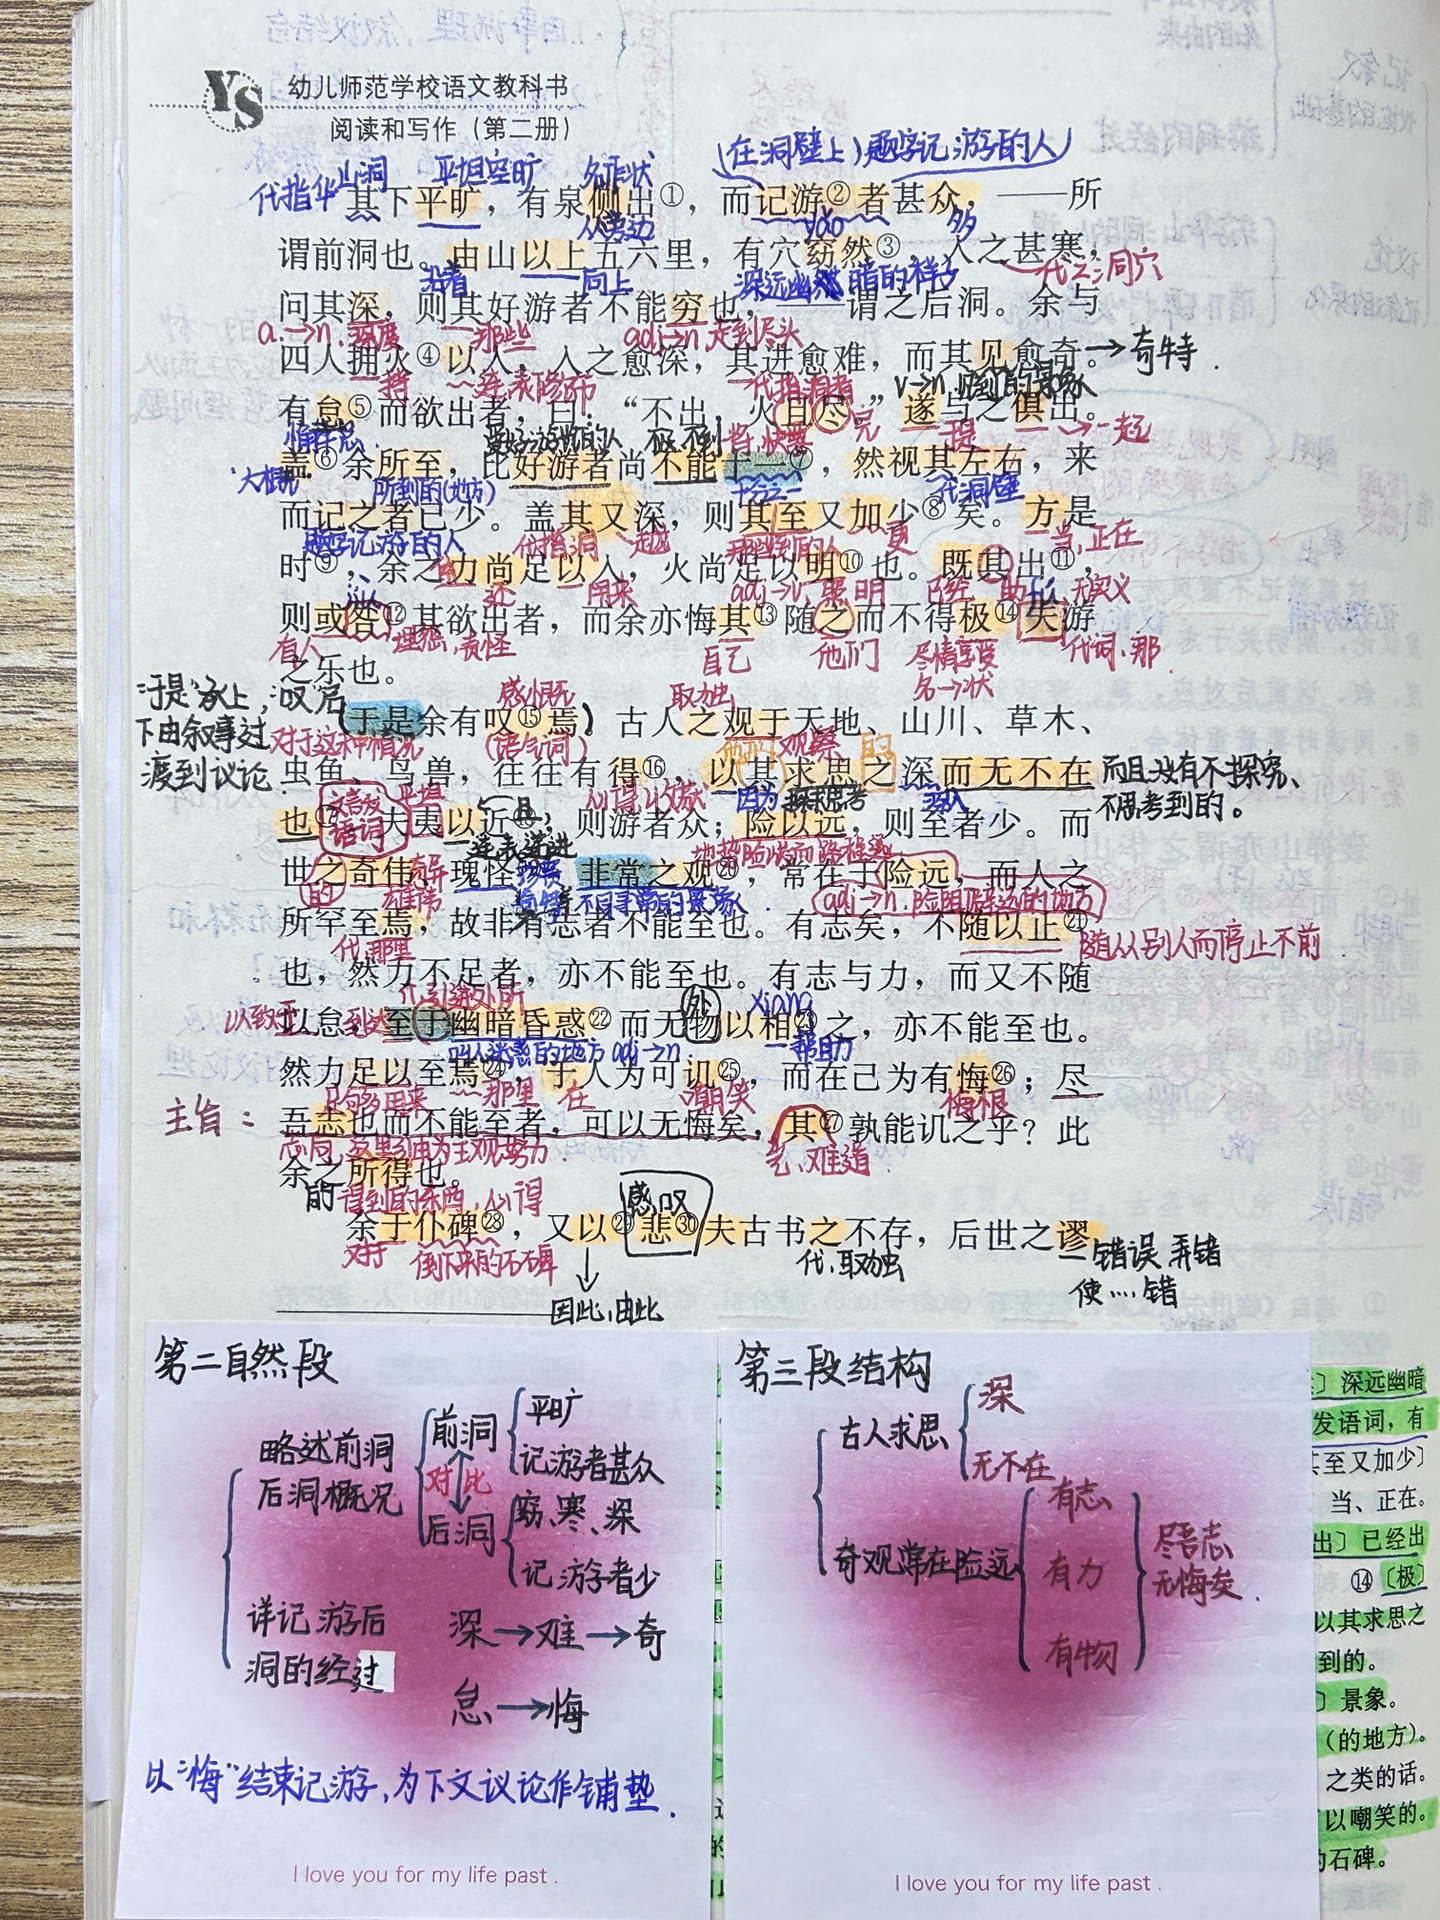 YS
幼儿师范学校语文教科书
阅读和写作（第二册）
(在洞壁上)题字记游的人
代指华山洞 平坦空旷 名作状
其下平旷，有泉侧出①，而记游②者甚众，——所
从旁边 yǎo 多
谓前洞也。由山以上五六里，有穴窈然③，入之甚寒，
沿着 向上 深远幽暗的样子 代之:洞穴
问其深，则其好游者不能穷也，——谓之后洞。余与
a.→n.深度 那些 adj→v.走到尽头
四人拥火④以入，入之愈深，其进愈难，而其见愈奇。→奇特.
连表修饰 代指消者 v→n.
有怠⑤而欲出者，曰：“不出，火且尽。”遂与之俱出。
将,快要 完 一起
盖⑥余所至，比好游者尚不能十一⑦，然视其左右，来
大概 所到的(地方) 十分之一 代洞壁
而记之者已少。盖其又深，则其至又加少⑧矣。方是
题字记游的人 代指洞 越 那些到的人 更 当,正在
时⑨，余之力尚足以入，火尚足以明⑩也。既其出⑪，
还 用来 adj→v.照明 已经 助词,无实义
jiù
则或咎⑫其欲出者，而余亦悔其⑬随之而不得极⑭夫游
有人 埋怨,责怪 自己 他们 尽情享受 代词,那
之乐也。
名→状
于是“承上,“叹”启
下由叙事过
渡到议论.
感慨 取独
于是余有叹⑮焉)古人之观于天地、山川、草木、
对于这种情况 (语气词) 观察
虫鱼、鸟兽，往往有得⑯，以其求思之深而无不在
心得,收获 因为 探求思考 深入
而且没有不探究、
不思考到的。
也⑰。夫夷以近⑱，则游者众；险以远，则至者少。而
文言发语词 平坦 且 连表递进
世之奇伟、瑰怪⑲、非常之观⑳，常在于险远，而人之
的 雄伟 不同寻常的景象 adj→n.险阻僻远的地方
所罕至焉，故非有志者不能至也。有志矣，不随以止㉑
代,那里 随从别人而停止不前.
也，然力不足者，亦不能至也。有志与力，而又不随
外 xiàng
以怠，至于幽暗昏惑㉒而无物以相㉓之，亦不能至也。
以致于 到达 叫人迷惑的地方 adj→n. 帮助
然力足以至焉㉔，于人为可讥㉕，而在己为有悔㉖；尽
足够用来 那里 在 嘲笑 悔恨
主旨:
吾志也而不能至者，可以无悔矣，其㉗孰能讥之乎？此
志向,这里引申为主观努力 岂,难道
余之所得也。
的 得到的东西,心得
感叹
余于仆碑㉘，又以㉙悲㉚夫古书之不存，后世之谬
对于 倒下来的石碑 代,取独 错误 弄错
使…错
因此,由此
第二自然段
略述前洞
后洞概况
前洞
平旷
记游者甚众
对比
后洞
窈、寒、深
记游者少
详记游后
洞的经过
深→难→奇
怠→悔
以“悔”结束记游,为下文议论作铺垫.
I love you for my life past .
第三段结构
古人求思
深
无不在
奇观常在险远
有志
有力
有物
尽吾志
无悔矣.
I love you for my life past .
〕深远幽暗
发语词，有
其至又加少〕
当、正在。
出〕已经出
⑭〔极〕
以其求思之
到的。
〕景象。
（的地方）。
之类的话。
以嘲笑的。
的石碑。